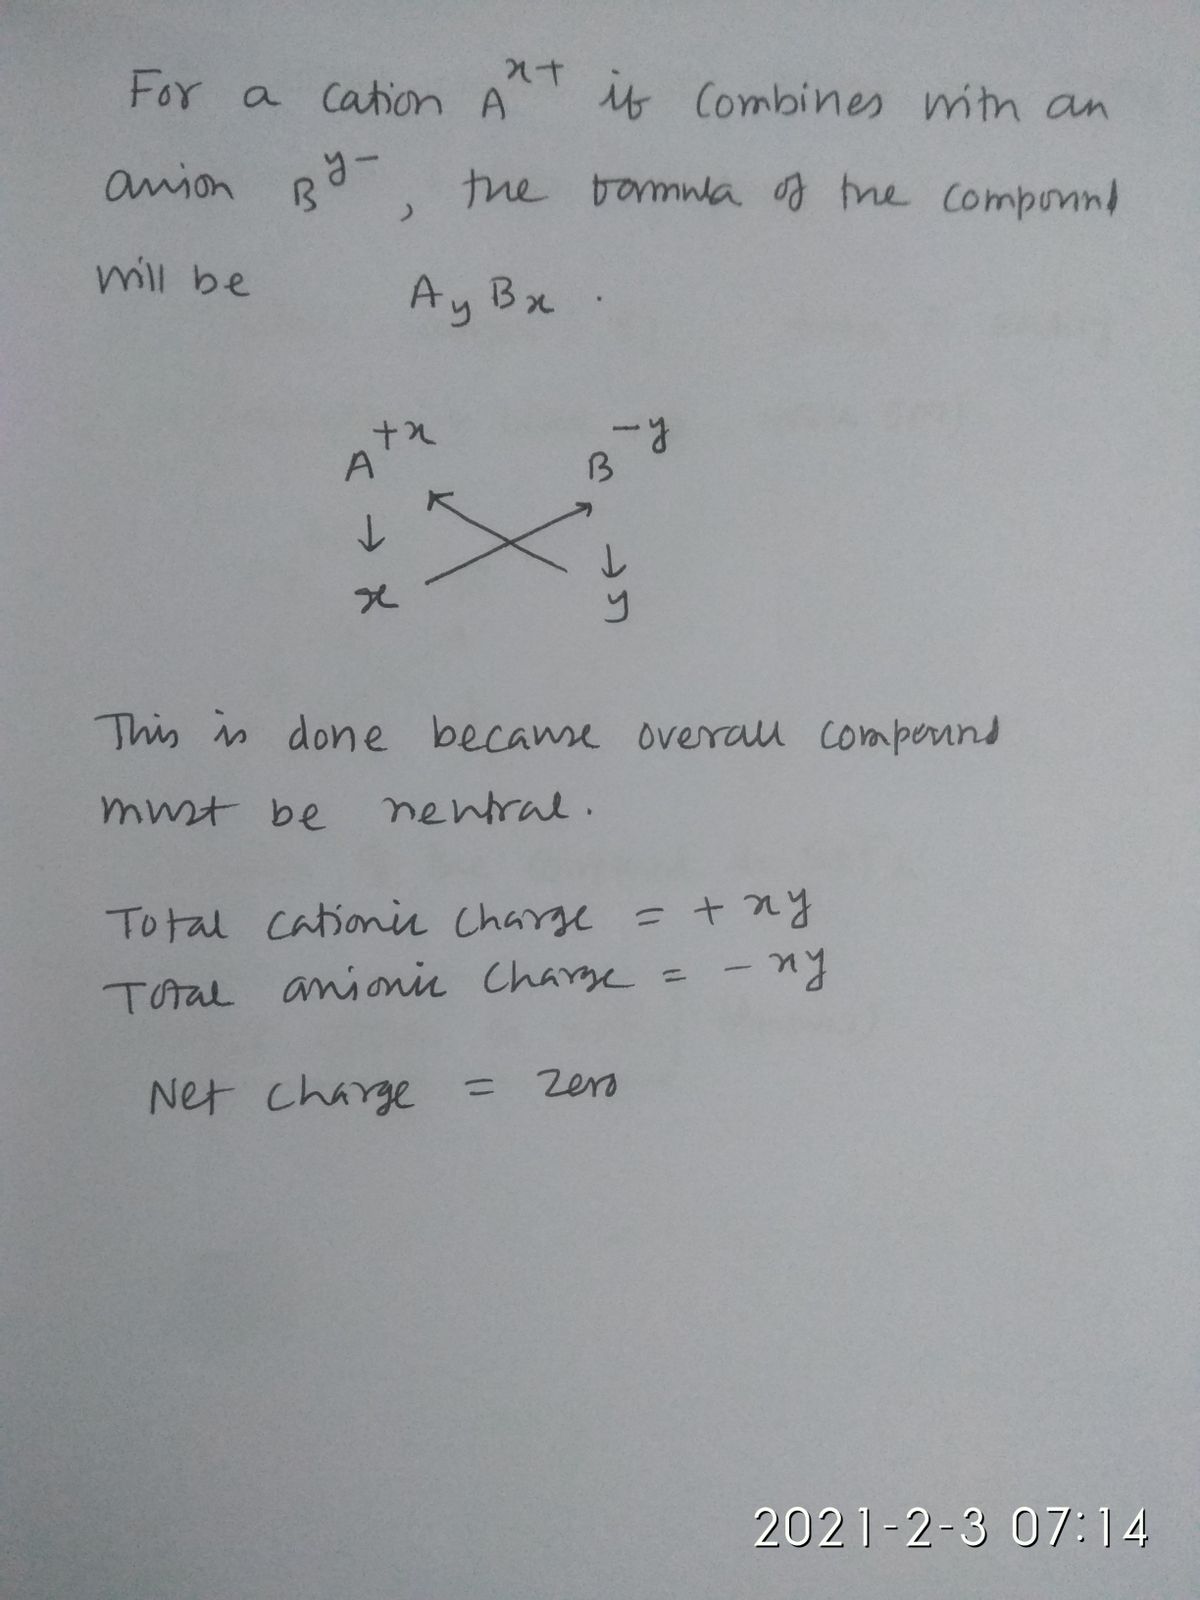 For a cation A^x+ if combines with an
anion B^y-, the formula of the compound
will be A_y B_x .
A^+x B^-y
↓ ↓
x y
This is done because overall compound
must be neutral.
Total cationic charge = + xy
Total anionic charge = - xy
Net charge = zero
2021-2-3 07:14